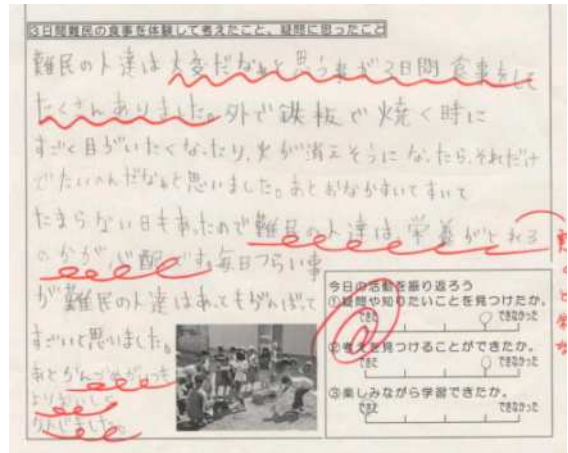 ３日間難民の食事を体験して考えたこと、疑問に思ったこと
難民の人達は大変だなぁと思う事が3日間食事をして
たくさんありました。外で鉄板で焼く時に
すごく目がいたくなったり、火が消えそうになったら、それだけ
でたいへんだなぁと思いました。あとおなかすいてすいて
たまらない日もあったので難民の人達は、栄養がとれる
のかが心配です。毎日つらい事
が難民の人達はあってもがんばって
すごいと思いました。
あとがんごめがいつも
よりおいしく
かんじました。
今日の活動を振り返ろう
①疑問や知りたいことを見つけたか。
できた できなかった
②考えを見つけることができたか。
できた できなかった
③楽しみながら学習できたか。
できた できなかった